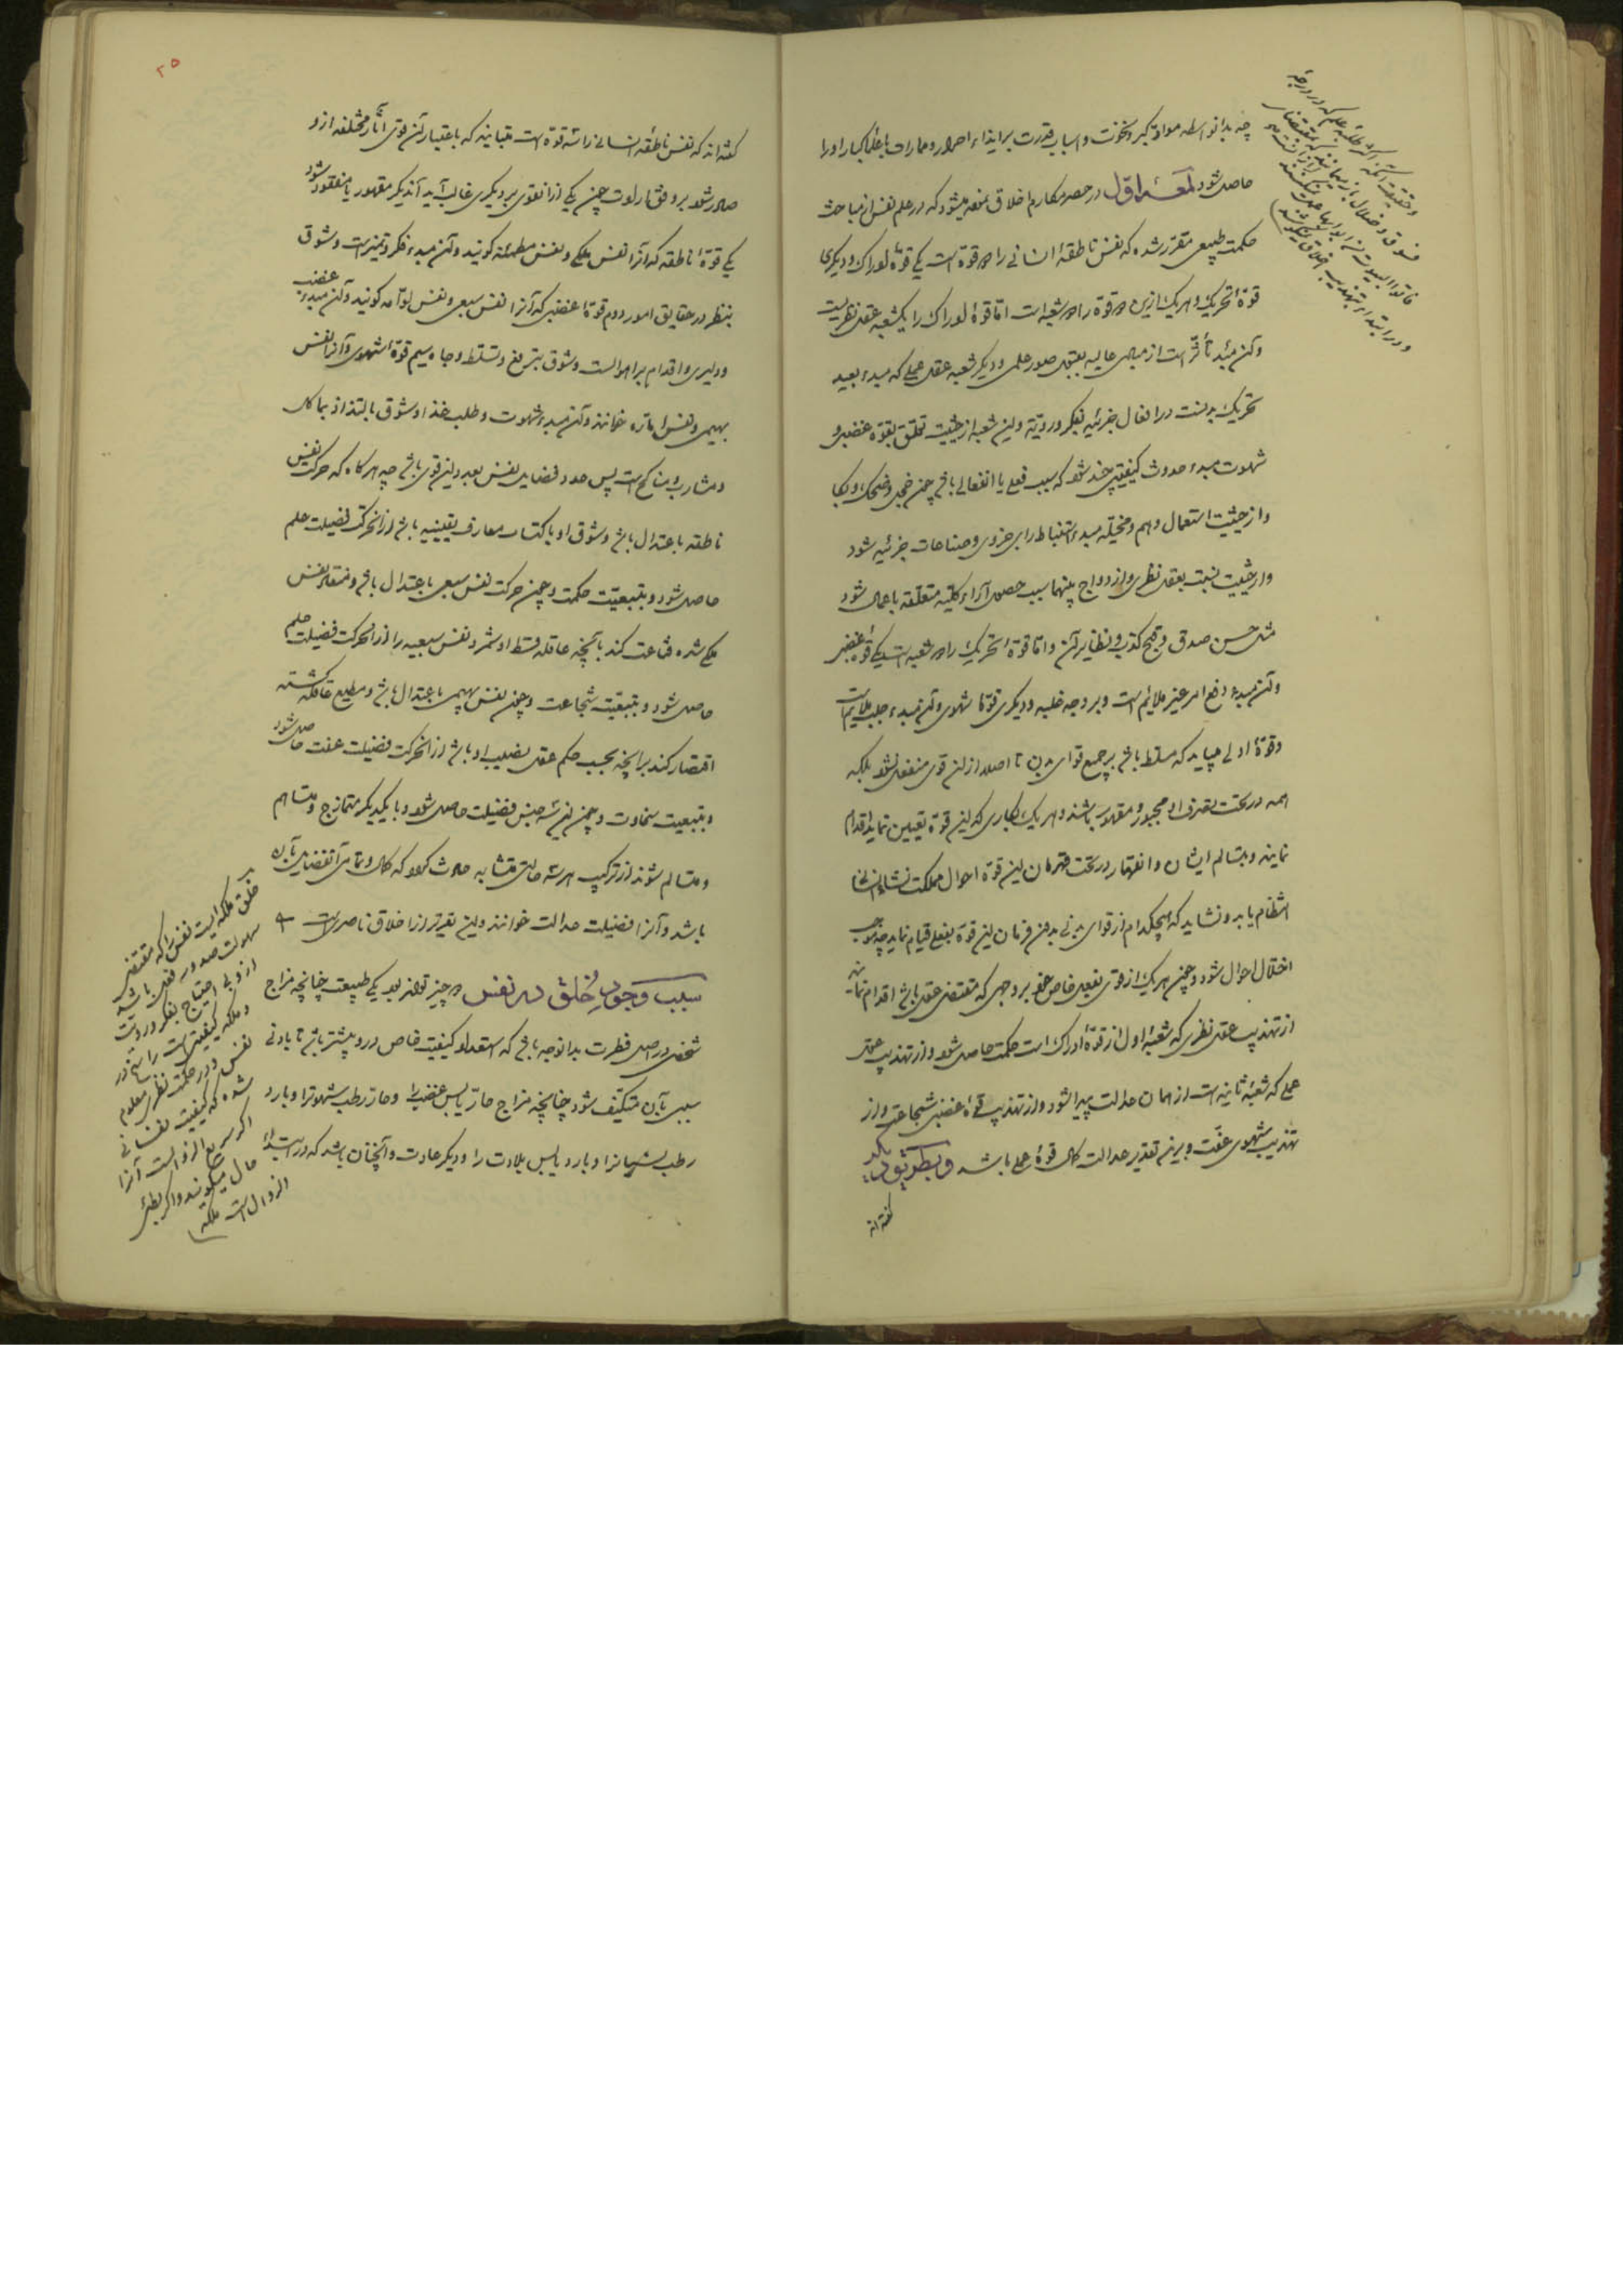 چه بدانواسطه مواد کبر و نخوت و اسباب قدرت بر ایذاء احرار و ممارات با علما کبار او را
حاصل شود لمعۀ اول در حصر مکارم اخلاق منصه میشود که در علم نفس از مباحث
حکمت طبیعی مقرر شده که نفس ناطقۀ انسانی را دو قوة است یکی قوۀ ادراک و دیگری
قوۀ تحریک و هر یک ازین دو قوة را دو شعبه است اما قوۀ ادراک را یک شعبه عقل نظریست
و آن مبدء تأثر است از مبادی عالیه بقبول صور علمی و دیگر شعبه عقل عملی که مبدء بعید
تحریک بدنست در افعال جزئیه بفکر و رویة و این شعبه از حیثیت تعلق بقوة غضبی و
شهوت مبدء حدوث کیفیتی چند شود که سبب فعل یا انفعالی باشد چون خجل و ضحک و بکا
و از حیثیت استعمال وهم و مخیله مبدء استنباط رای جزوی و صناعات جزئیه شود
و از حیثیت نسبت بعقل نظری و ازدواج بینهما سبب حصول آراء کلیه متعلقه باعمال شود
مثل حسن صدق و قبح کذب و نظایر آن و اما قوۀ تحریک را دو شعبه است یکی قوۀ غضبی
و آن مبدء دفع امر غیر ملائم است و بر وجه غلبه و دیگری قوۀ شهوی و آن مبدء جلب ملایم است
و قوۀ اولی میباید که مسلط باشد بر جمیع قوای بدن تا اصلا از این قوی منفعل نشود بلکه
همه در تحت تصرف او مجبور و مقهور باشند و هر یک بکاری که این قوة تعیین نماید اقدام
نمایند و بتسالم ایشان و انقهار در تحت فرمان این قوة احوال مملکت نشاء انسانی
انتظام یابد و نشاید که هیچکدام از قوای بدنی بدون فرمان این قوة بفعلی قیام نماید چه موجب
اختلال احوال شود و چون هر یک از قوی بفعل خاص خود بر وجهی که مقتضی عقل باشد اقدام نمایند
از تهذیب عقل نظری که شعبۀ اول از قوۀ ادراک است حکمت حاصل شود و از تهذیب عقل
عملی که شعبۀ ثانیه است از همان عدالت پیدا شود و از تهذیب قوۀ غضبی شجاعت و از
تهذیب شهوی عفت و برین تقدیر عدالت کمال قوۀ عملی باشد و بطریق دیگر
گفته اند
و حقیقت آنکه اکثر طلبۀ علم که در درجۀ
فسوق و ضلال باز میمانند که بمقتضای
فأتوا البیوت من ابوابها عمل نمیکنند
و در ابتدا بر تهذیب اخلاق نمیکوشند
۲۵
گفته اند که نفس ناطقۀ انسانی را سه قوة است متباینه که باعتبار آن قوی آثار مختلفه ازو
صادر شود بر وفق ارادت چون یکی از آن قوی بر دیگری غالب آید آن دیگر مقهور یا مفقود شود
یکی قوۀ ناطقه که آنرا نفس ملکی و نفس مطمئنه گویند و آن مبدء فکر و تمیز است و شوق
بنظر در حقایق امور دوم قوۀ غضبی که آنرا نفس سبعی و نفس لوامه گویند و آن مبدء غضب
و دلیری و اقدام بر اهوالست و شوق بترفع و تسلط و جاه سیم قوۀ شهوی و آنرا نفس
بهیمی و نفس اماره خوانند و آن مبدء شهوت و طلب غذا و شوق بالتذاذ بمآکل
و مشارب و مناکح است پس عدد فضایل نفس بعدد این قوی باشد چه هرگاه که حرکت نفس
ناطقه باعتدال باشد و شوق او باکتساب معارف یقینیه باشد از آن حرکت فضیلت علم
حاصل شود و بتبعیت حکمت و چون حرکت نفس سبعی باعتدال باشد و منقاد نفس
ملکی شده قناعت کند بآنچه عاقله قسط او شمرد نفس سبعیه را از آن حرکت فضیلت حلم
حاصل شود و بتبعیت شجاعت و چون نفس بهیمی باعتدال باشد و مطیع عاقله گشته
اقتصار کند بر آنچه بحسب حکم عقل نصیب او باشد از آن حرکت فضیلت عفت حاصل شود
و بتبعیت سخاوت و چون این سه جنس فضیلت حاصل شود و با یکدیگر متمازج و متساهم
و متسالم شوند از ترکیب هر سه حالتی متشابه حادث گردد که کمال و تمامی آن فضایل بآن
باشد و آنرا فضیلت عدالت خوانند و این تقریر از اخلاق ناصریست
سبب وجود خلق در نفس دو چیز تواند بود یکی طبیعت چنانچه مزاج
شخصی در اصل فطرت بدانوجه باشد که استعداد کیفیت خاص درو بیشتر باشد تا بادنی
سببی بآن متکیف شود چنانچه مزاج حار یابس غضب را و حار رطب شهوت را و بارد
رطب نسیانرا و بارد یابس بلادت را و دیگر عادت و آنچنان باشد که در ابتدا
خلق ملکه ایست نفس را که مقتضی
سهولت صدور فعل باشد
ازو بی احتیاج بفکر و رویت
و ملکه کیفیتی است راسخ در
نفس و در حکمت نظری معلوم
شده که کیفیت نفسانی
اگر سریع الزوالست آنرا
حال میگویند و اگر بطئ
الزوال است ملکه